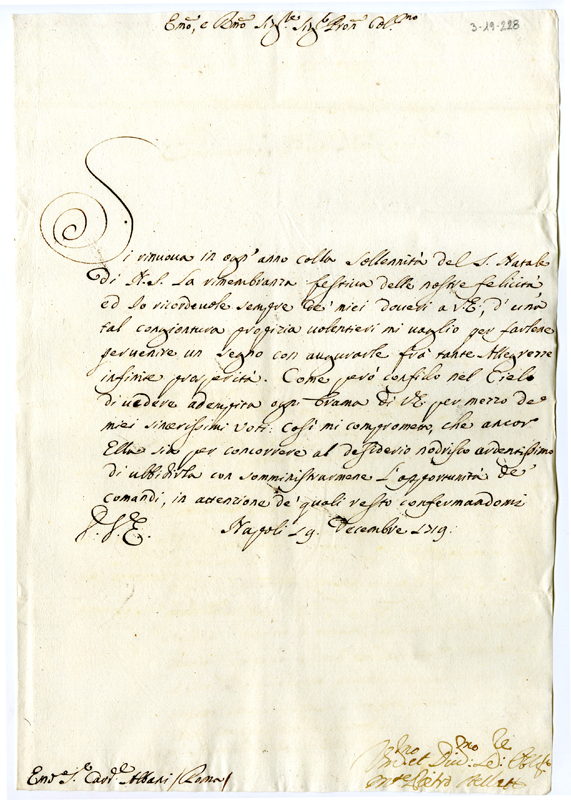 Em̃o, e Rm̃o Sig.re Sig.r Pron̄ Col.mo
3-19-228
Si rinuova in ogn' anno colla Sollennità del S. Natale
di N. S. La rimembranza festiva delle nostre felicità
ed Io ricordevole sempre de' miei doveri a V.E., d' una
tal congiontura propizia volentieri mi vaglio per farlene
pervenire un Segno con augurarle frà tante Allegrezze
infinite prosperità. Come però confido nel Cielo
di vedere adempita ogni brama di V.E. per mezzo de
miei sincerissimi Voti: Così mi comprometto, che ancor
Ella sia per concorrere al desiderio nodrisco ardentissimo
di ubbidirla con somministrarmene L'opportunità de'
comandi, in attenzione de' quali resto confermandomi
D. V. E. Napoli 19. Decembre 1719:
Em̃o S.r Card.le Albani (Roma)